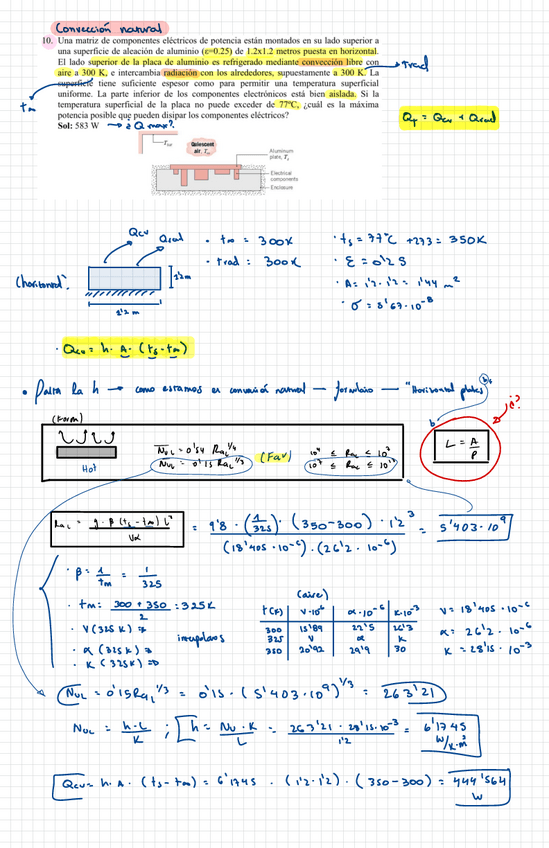 Convección natural
10. Una matriz de componentes eléctricos de potencia están montados en su lado superior a
una superficie de aleación de aluminio (ε=0.25) de 1.2x1.2 metros puesta en horizontal.
El lado superior de la placa de aluminio es refrigerado mediante convección libre con
aire a 300 K, e intercambia radiación con los alrededores, supuestamente a 300 K. La → trad
superficie tiene suficiente espesor como para permitir una temperatura superficial
uniforme. La parte inferior de los componentes electrónicos está bien aislada. Si la
t∞ temperatura superficial de la placa no puede exceder de 77ºC, ¿cuál es la máxima
potencia posible que pueden disipar los componentes eléctricos?
Sol: 583 W → ¿Qmax?
QT = Qcv + Qrad
Quiescent
air, T∞
Aluminum
plate, Ts
Electrical
components
Enclosure
Qcv Qrad
· t∞ = 300K · ts = 77ºC +273 = 350K
· trad = 300K · ε = 0'25
(horizontal) 1'2 m · A = 1'2·1'2 = 1'44 m²
1'2 m · σ = 5'67·10⁻⁸
· Qcv = h·A·(ts-t∞)
• Para la h → como estamos en convección natural — formulario — "Horizontal plates"
(Form) b ¿?
NuL = 0'54 RaL^1/4 10⁴ ≤ RaL ≤ 10⁷
Hot NuL = 0'15 RaL^1/3 (Fav) 10⁷ ≤ RaL ≤ 10¹¹
L = A/P
RaL = g·β (ts-t∞) L³ / να = 9'8·(1/325)·(350-300)·1'2³ / (18'405·10⁻⁶)·(26'2·10⁻⁶) = 5'403·10⁹
· β = 1/tm = 1/325
· tm: 300 + 350 / 2 = 325K
(aire)
t(K) ν·10⁻⁶ α·10⁻⁶ K·10⁻³ ν = 18'405·10⁻⁶
· ν (325 K) ⇒ 300 15'89 22'5 26'3
interpolamos 325 ν α K α = 26'2·10⁻⁶
· α (325K) ⇒ 350 20'92 29'9 30 K = 28'15·10⁻³
· K (325K) ⇒
NuL = 0'15 RaL^1/3 = 0'15·(5'403·10⁹)^1/3 = 263'21
NuL = h·L/K ; h = Nu·K/L = 263'21·28'15·10⁻³ / 1'2 = 6'1745 W/K·m²
Qcv = h·A·(ts-t∞) = 6'1745·(1'2·1'2)·(350-300) = 444'564 W